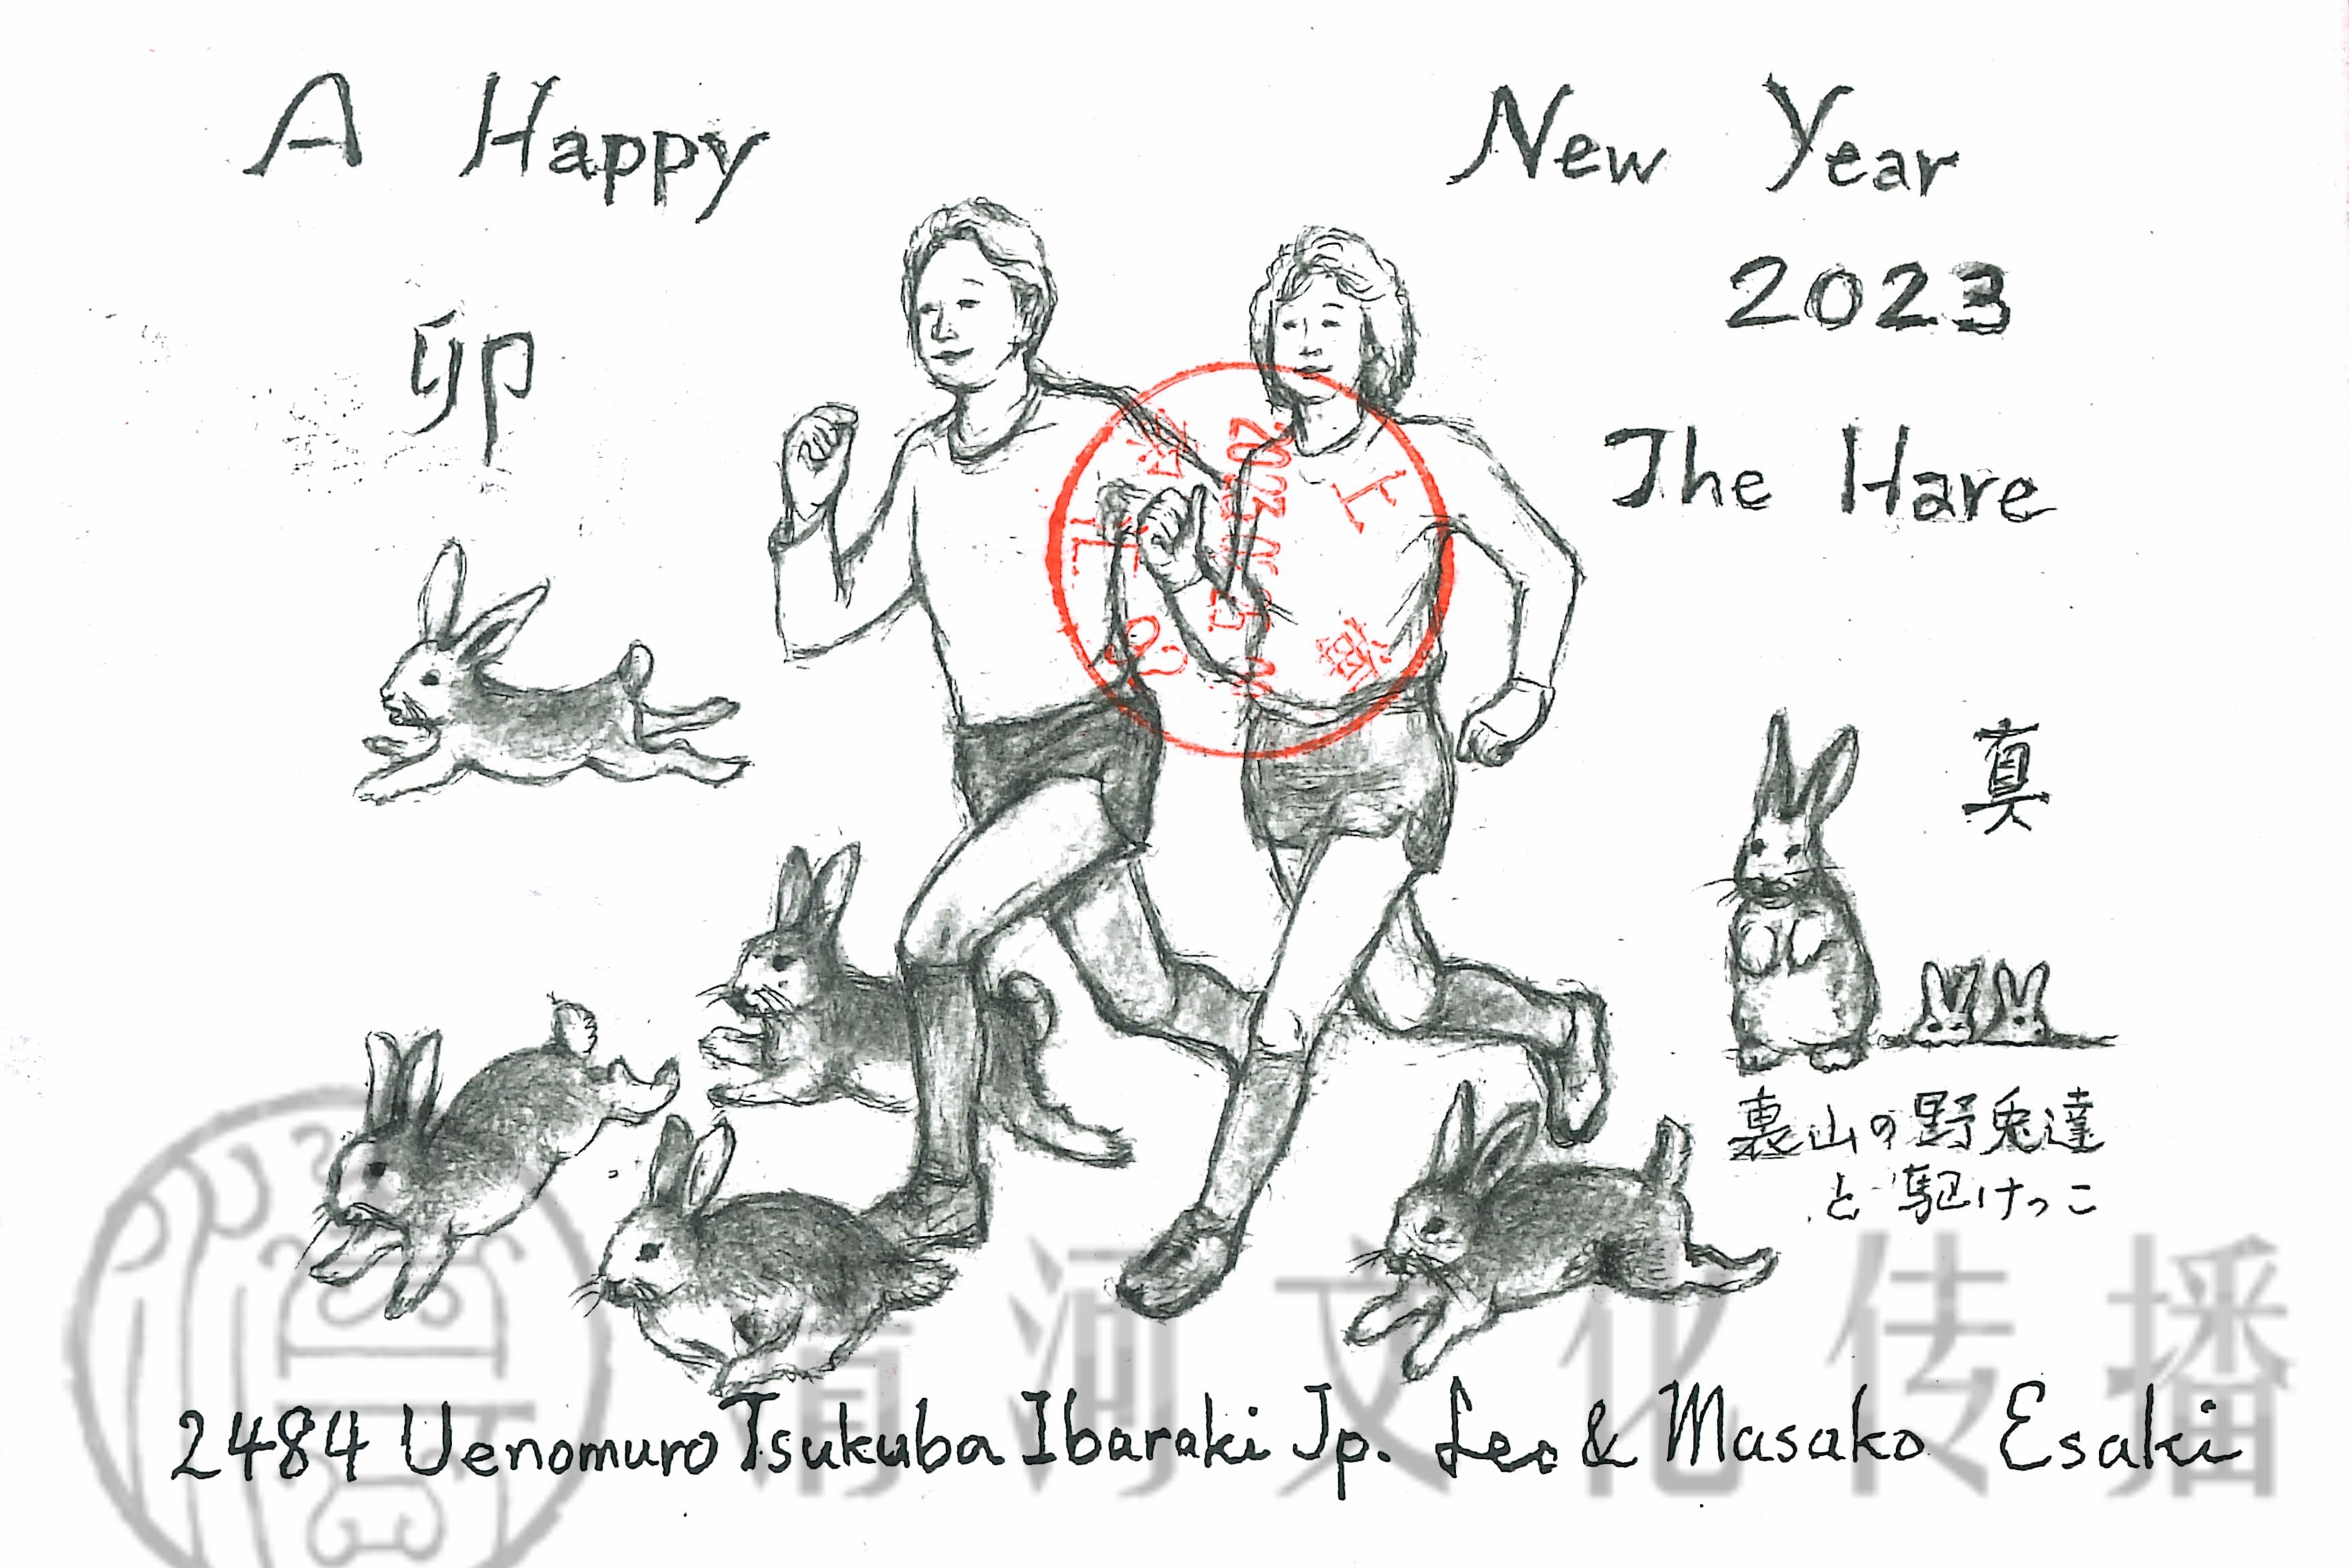 A Happy New Year
2023
卯
The Hare
真
裏山の野兎達
と駆けっこ
上海
2484 Uenomuro Tsukuba Ibaraki Jp. Leo & Masako Esaki
河文化传播